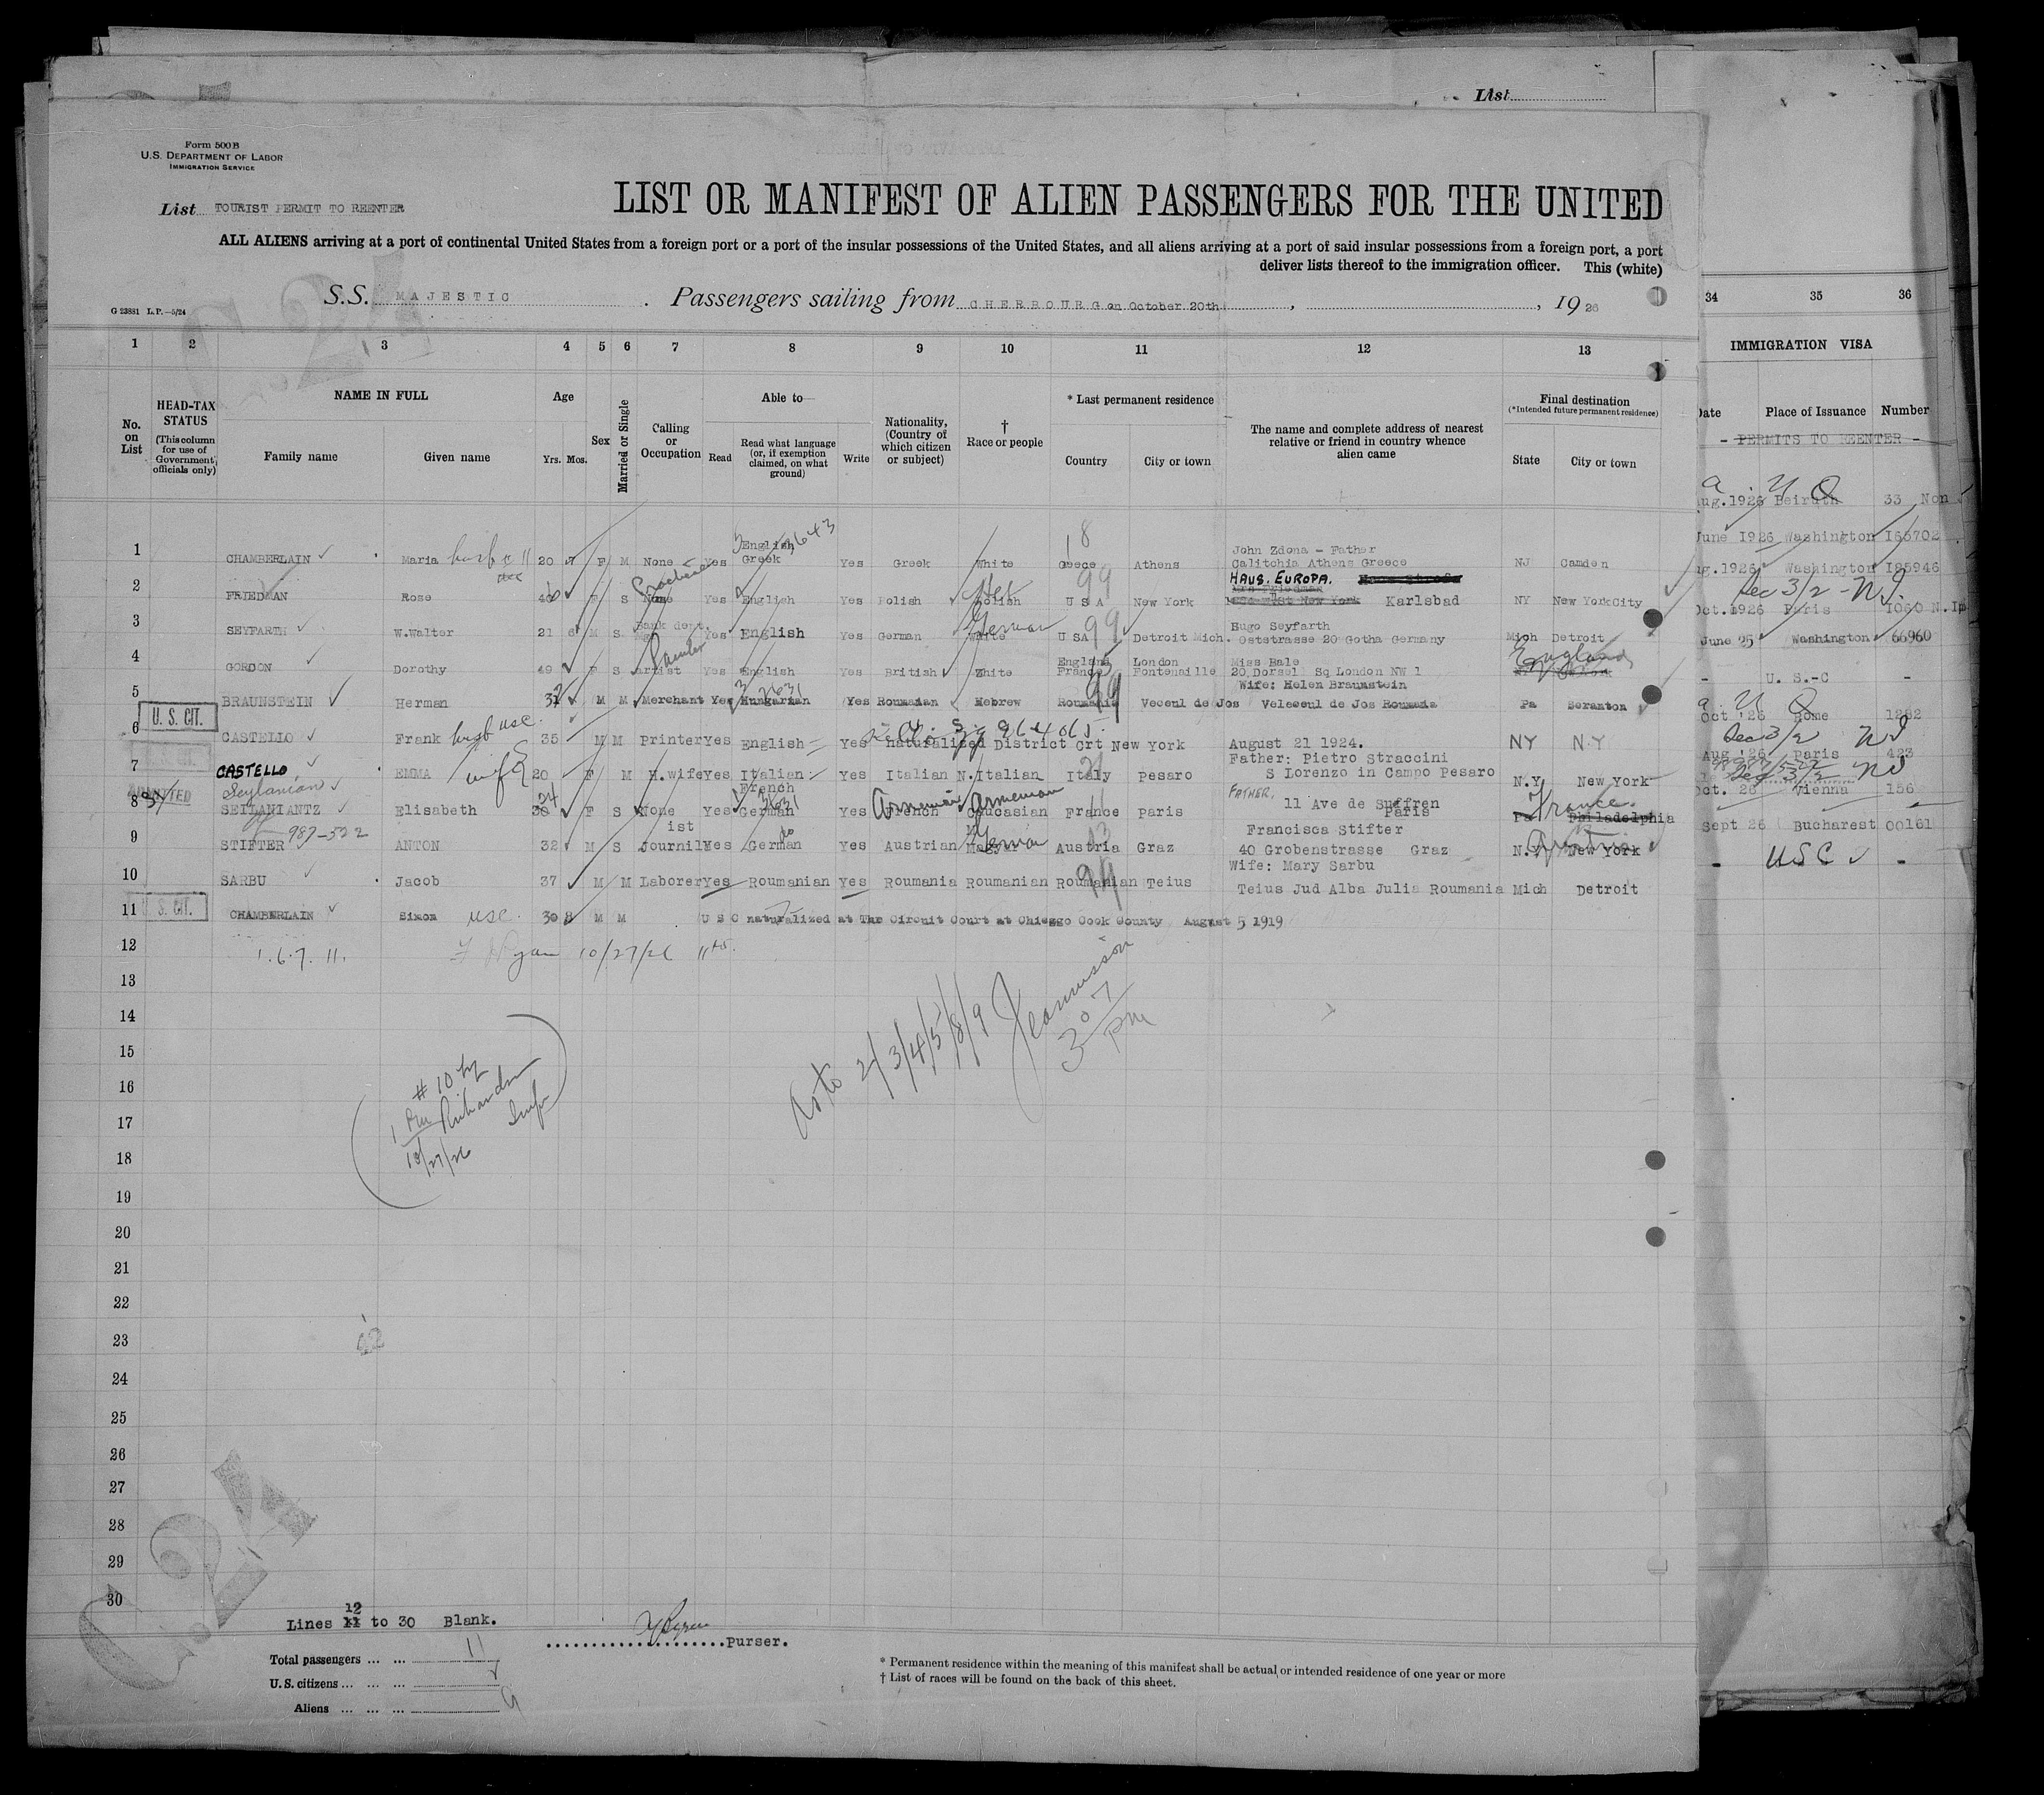 List
Form 500 B
U.S. DEPARTMENT OF LABOR
IMMIGRATION SERVICE
List TOURIST PERMIT TO REENTER
LIST OR MANIFEST OF ALIEN PASSENGERS FOR THE UNITED
ALL ALIENS arriving at a port of continental United States from a foreign port or a port of the insular possessions of the United States, and all aliens arriving at a port of said insular possessions from a foreign port, a port
deliver lists thereof to the immigration officer. This (white)
S.S. MAJESTIC. Passengers sailing from CHERBOURG on October 20th, , 19 26
G 23881 L.P.—5/24
1 2 3 4 5 6 7 8 9 10 11 12 13
34 35 36
IMMIGRATION VISA
No. on List
HEAD-TAX STATUS
(This column for use of Government officials only)
NAME IN FULL
Family name Given name
Age
Yrs. Mos.
Sex
Married or Single
Calling or Occupation
Able to
Read Read what language (or, if exemption claimed, on what ground) Write
Nationality, (Country of which citizen or subject)
† Race or people
* Last permanent residence
Country City or town
The name and complete address of nearest relative or friend in country whence alien came
Final destination
(*Intended future permanent residence)
State City or town
Date Place of Issuance Number
- PERMITS TO REENTER -
1 CHAMBERLAIN Maria 20 7 F M None Yes English Greek Yes Greek White Greece Athens John Zdona - Father Calitchia Athens Greece NJ Camden
2 FRIEDMAN Rose F S None Yes English Yes Polish Polish U S A New York HAUS. EUROPA. Karlsbad NY New York City
3 SEYFARTH W.Walter 21 6 M S Bank dept. Yes English Yes German White German U SA Detroit Mich. Hugo Seyfarth Oststrasse 20 Gotha Germany Mich Detroit
4 GORDON Dorothy 49 F S artist Yes English Yes British White England France London Fontenaille Miss Bale 20 Dorsel Sq London NW 1 England
5 BRAUNSTEIN Herman M M Merchant Yes Hungarian Yes Roumanian Hebrew Roumania Veceul de Jos Wife: Helen Braunstein Veleceul de Jos Roumania Pa Scranton
U. S. CIT.
6 CASTELLO Frank 35 M M Printer Yes English Yes naturalized District Crt New York August 21 1924. NY N.Y
7 CASTELLO EMMA wife 20 F M H.wife Yes Italian Yes Italian N.Italian Italy Pesaro Father: Pietro Straccini S Lorenzo in Campo Pesaro N.Y New York
ADMITTED
Seylanian
8 SEILANIANTZ Elisabeth F S None Yes French German Yes French Armenian Caucasian Armenian France Paris FATHER, 11 Ave de Suffren Paris Pa Philadelphia France.
987-522
9 STIFTER ANTON 32 M S Journilist Yes German Yes Austrian Magyar German Austria Graz Francisca Stifter 40 Grobenstrasse Graz N.Y New York
10 SARBU Jacob 37 M M Laborer Yes Roumanian Yes Roumania Roumanian Roumanian Teius Wife: Mary Sarbu Teius Jud Alba Julia Roumania Mich Detroit
U. S. CIT.
11 CHAMBERLAIN Simon usc. 30 8 M M U S C naturalized at The Circuit Court at Chicago Cook County August 5 1919
12 1.6.7.11. Ryan 10/27/26
13
14
15
16
17
18
19
20
21
22
23
24
25
26
27
28
29
30
Aug.1926 Beiruth 33 Non
June 1926 Washington 165702
Aug.1926 Washington 185946
Sec 3/2 - NI.
Oct. 1926 Paris 1060 N.Ip
June 25 Washington 66960
- U. S.-C -
Oct '26 Rome 1282
Sec 3/2 NI
Aug '26 Paris 423
Oct. 26 Vienna 156
Sept 26 Bucharest 00161
- USC -
As to 2/3/4/5/8/9
3 07 PM
# 10 by
1 PM Richardson
10/27/26 Insp
C.24
Lines 12 to 30 Blank.
Purser.
Total passengers ... ... 11
U. S. citizens ... ... ...
Aliens ... ... ... 9
* Permanent residence within the meaning of this manifest shall be actual or intended residence of one year or more
† List of races will be found on the back of this sheet.